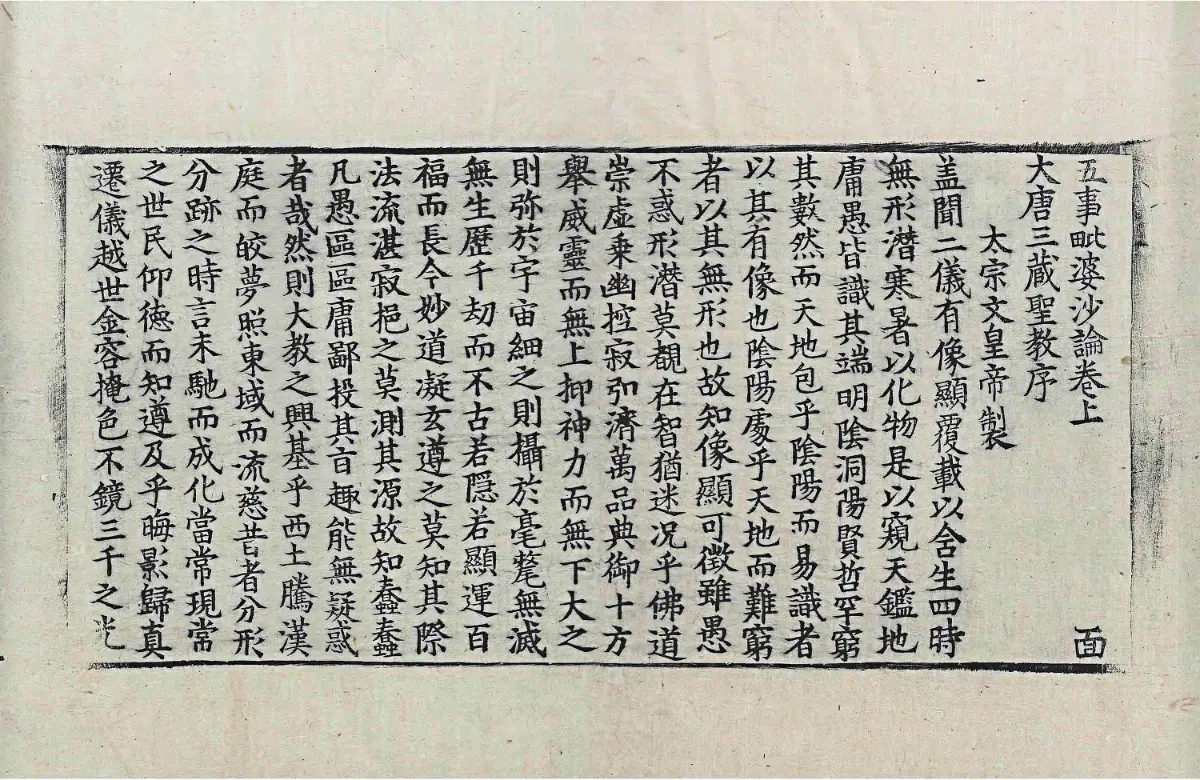 五事毗婆沙論卷上　面
大唐三藏聖教序
太宗文皇帝製
盖聞二儀有像顯覆載以含生四時
無形潛寒暑以化物是以窺天鑑地
庸愚皆識其端明陰洞陽賢哲罕窮
其數然而天地包乎陰陽而易識者
以其有像也陰陽處乎天地而難窮
者以其無形也故知像顯可徵雖愚
不惑形潛莫覩在智猶迷况乎佛道
崇虛乗幽控寂弘濟萬品典御十方
舉威靈而無上抑神力而無下大之
則弥於宇宙細之則攝於毫氂無滅
無生歷千劫而不古若隱若顯運百
福而長今妙道凝玄遵之莫知其際
法流湛寂挹之莫測其源故知蠢蠢
凡愚區區庸鄙投其旨趣能無疑惑
者哉然則大教之興基乎西土騰漢
庭而皎夢照東域而流慈昔者分形
分跡之時言未馳而成化當常現常
之世民仰德而知遵及乎晦影歸真
遷儀越世金容掩色不鏡三千之光